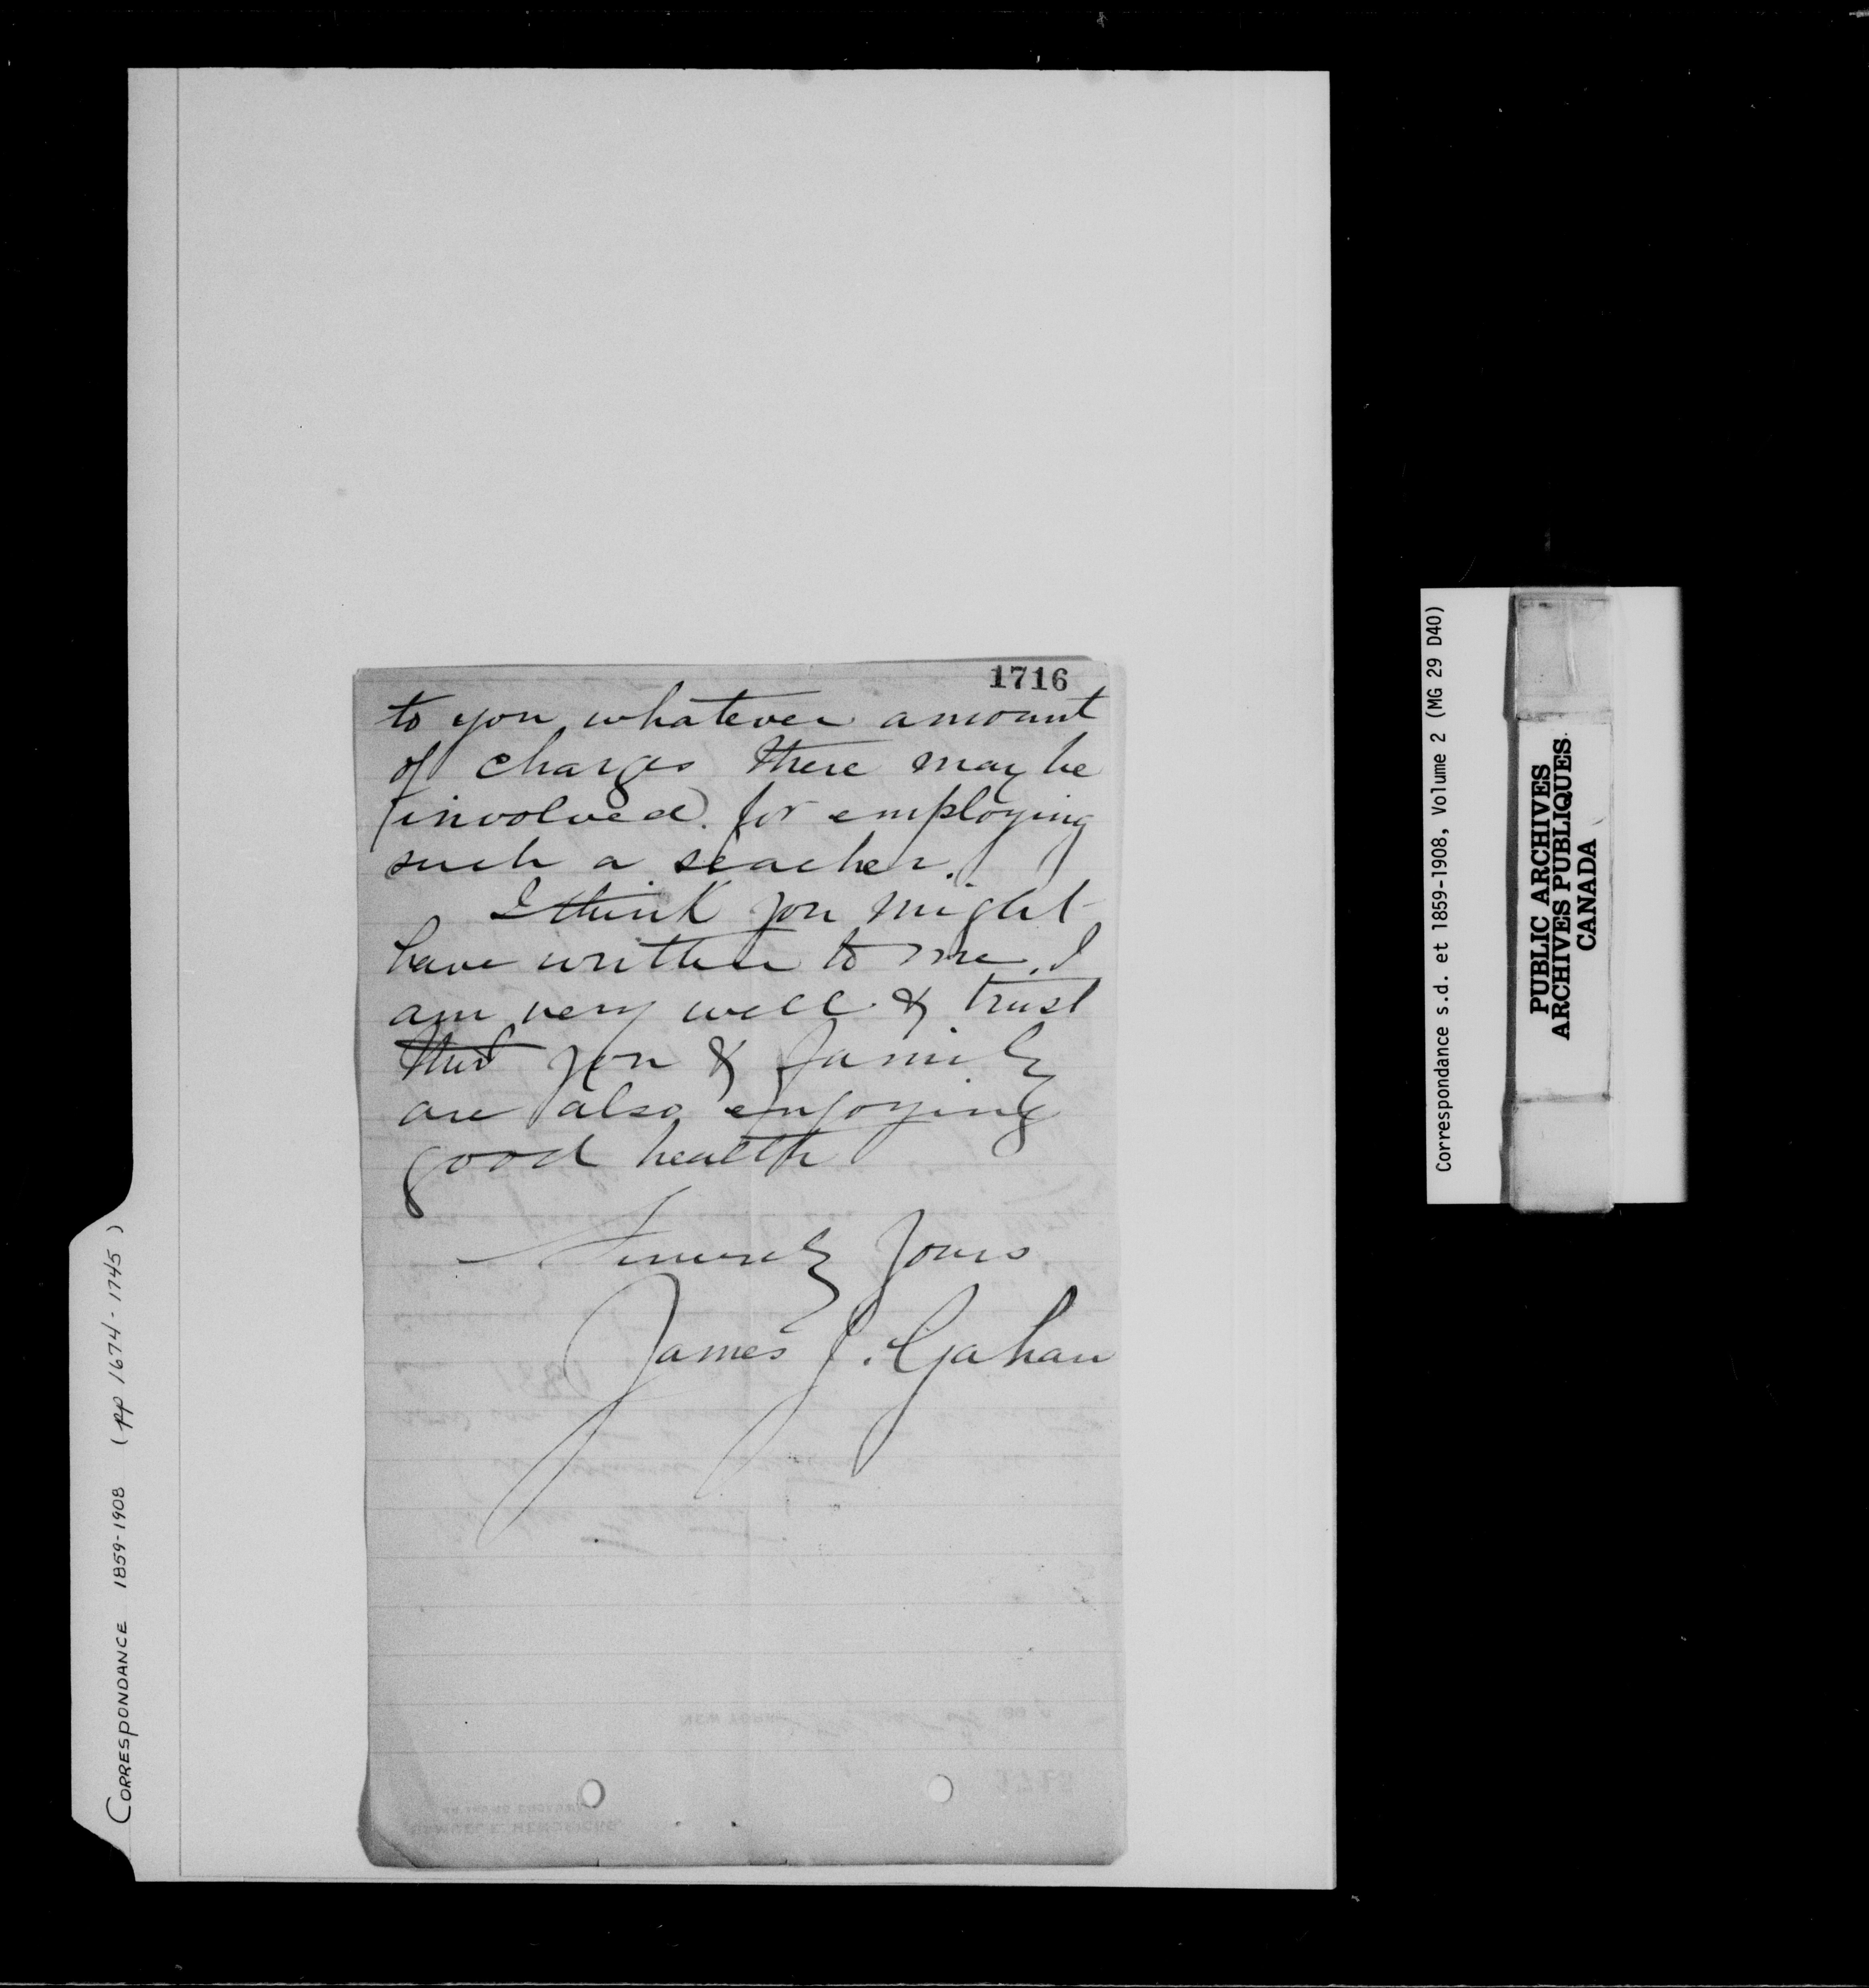 1716
to you whatever amount
of charges there may be
involved for employing
such a seacher.
I think you might
have written to me. I
am very well & trust
that you & family
are also enjoying
good health
Sincerely Yours
James J. Gahan
CORRESPONDANCE 1859-1908 (pp 1674-1745)
Correspondance s.d. et 1859-1908, Volume 2 (MG 29 D40)
PUBLIC ARCHIVES
ARCHIVES PUBLIQUES
CANADA